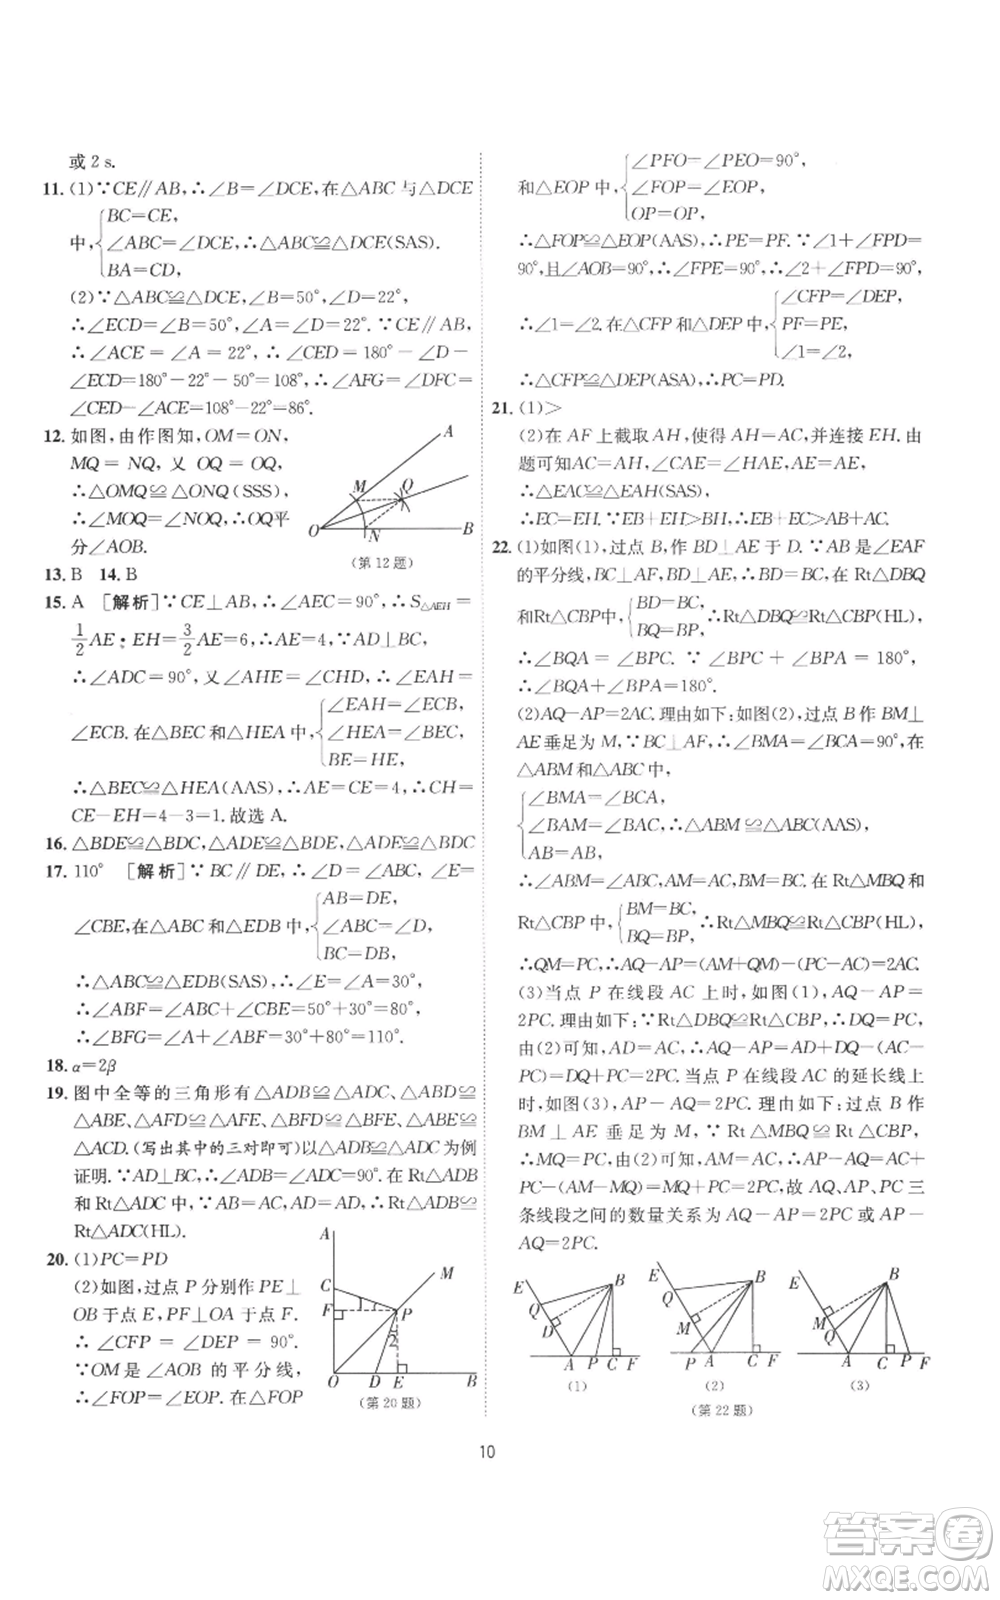 或2 s.
11. (1)∵CE∥AB,∴∠B=∠DCE,在△ABC与△DCE
中,{BC=CE,
∠ABC=∠DCE,∴△ABC≌△DCE(SAS).
BA=CD,
(2)∵△ABC≌△DCE,∠B=50°,∠D=22°,
∴∠ECD=∠B=50°,∠A=∠D=22°.∵CE∥AB,
∴∠ACE=∠A=22°,∴∠CED=180°-∠D-
∠ECD=180°-22°-50°=108°,∴∠AFG=∠DFC=
∠CED-∠ACE=108°-22°=86°.
12. 如图,由作图知,OM=ON,
MQ=NQ,又 OQ=OQ,
∴△OMQ≌△ONQ(SSS),
∴∠MOQ=∠NOQ,∴OQ平
分∠AOB.
A
M
Q
O
N
B
(第12题)
13. B 14. B
15. A [解析]∵CE⊥AB,∴∠AEC=90°,∴S△AEH=
1/2 AE·EH=3/2 AE=6,∴AE=4,∵AD⊥BC,
∴∠ADC=90°,又∠AHE=∠CHD,∴∠EAH=
∠ECB.在△BEC和△HEA中,{∠EAH=∠ECB,
∠HEA=∠BEC,
BE=HE,
∴△BEC≌△HEA(AAS),∴AE=CE=4,∴CH=
CE-EH=4-3=1.故选A.
16. △BDE≌△BDC,△ADE≌△ADC,△ABD≌△BDC
17. 110° [解析]∵BC∥DE,∴∠D=∠ABC,∠E=
∠CBE,在△ABC和△EDB中,{AB=DE,
∠ABC=∠D,
BC=DB,
∴△ABC≌△EDB(SAS),∴∠E=∠A=30°,
∴∠ABF=∠ABC+∠CBE=50°+30°=80°,
∴∠BFG=∠A+∠ABF=30°+80°=110°.
18. α=2β
19. 图中全等的三角形有△ADB≌△ADC,△ABE≌
△ABE,△AFD≌△AFE,△BFD≌△BFE,△ABE≌
△ACD.(写出其中的三对即可)以△ADB≌△ADC为例
证明.∵AD⊥BC,∴∠ADB=∠ADC=90°.在Rt△ADB
和Rt△ADC中,∵AB=AC,AD=AD,∴Rt△ADB≌
Rt△ADC(HL).
20. (1)PC=PD
(2)如图,过点P分别作PE⊥
OB于点E,PF⊥OA于点F.
∴∠CFP=∠DEP=90°.
∵OM是∠AOB的平分线,
∴∠FOP=∠EOP.在△FOP
A
C
M
F
P
2
O
D
E
B
(第20题)
和△EOP中,{∠PFO=∠PEO=90°,
∠FOP=∠EOP,
OP=OP,
∴△FOP≌△EOP(AAS),∴PE=PF.∵∠1+∠FPD=
90°,且∠AOB=90°,∴∠FPE=90°,∴∠2+∠FPD=90°,
∴∠1=∠2.在△CFP和△DEP中,{∠CFP=∠DEP,
PF=PE,
∠1=∠2,
∴△CFP≌△DEP(ASA),∴PC=PD.
21. (1)>
(2)在AF上截取AH,使得AH=AC,并连接EH.由
题可知AC=AH,∠CAE=∠HAE,AE=AE,
∴△EAC≌△EAH(SAS),
∴EC=EH.∵EB+EH>BH,∴EB+EC>AB+AC.
22. (1)如图(1),过点B,作BD⊥AE于D.∵AB是∠EAF
的平分线,BC⊥AF,∴BD=BC,在Rt△DBQ
和Rt△CBP中,{BD=BC,
BQ=BP,∴Rt△DBQ≌Rt△CBP(HL),
∴∠BQA=∠BPC.∵∠BPC+∠BPA=180°,
∴∠BQA+∠BPA=180°.
(2)AQ-AP=2AC.理由如下:如图(2),过点B作BM⊥
AE垂足为M,∵BC⊥AF,∴∠BMA=∠BCA=90°,在
△ABM和△ABC中,
{∠BMA=∠BCA,
∠BAM=∠BAC,∴△ABM≌△ABC(AAS),
AB=AB,
∴∠ABM=∠ABC,AM=AC,BM=BC.在Rt△MBQ和
Rt△CBP中,{BM=BC,
BQ=BP,∴Rt△MBQ≌Rt△CBP(HL),
∴QM=PC,∴AQ-AP=(AM+QM)-(PC-AC)=2AC.
(3)当点P在线段AC上时,如图(1),AQ-AP=
2PC.理由如下:∵Rt△DBQ≌Rt△CBP,∴DQ=PC,
由(2)可知,AD=AC,∴AQ-AP=AD+DQ-
(AC-CP)=2PC.当点P在线段AC的延长线上
时,如图(3),AP-AQ=2PC.理由如下:过点B作
BM⊥AE垂足为M,∵Rt△MBQ≌Rt△CBP,
∴MQ=PC,由(2)可知,AM=AC,∴AP-AQ=AC+
CP-(AM-MQ)=MQ+PC=2PC,故AQ、AP、PC三
条线段之间的数量关系为AQ-AP=2PC或AP-
AQ=2PC.
E
B
Q
D
A P C F
(1)
E
B
Q
M
P A C F
(2)
E
B
M
Q
A C P F
(3)
(第22题)
10
答案卷
MXQE.COM